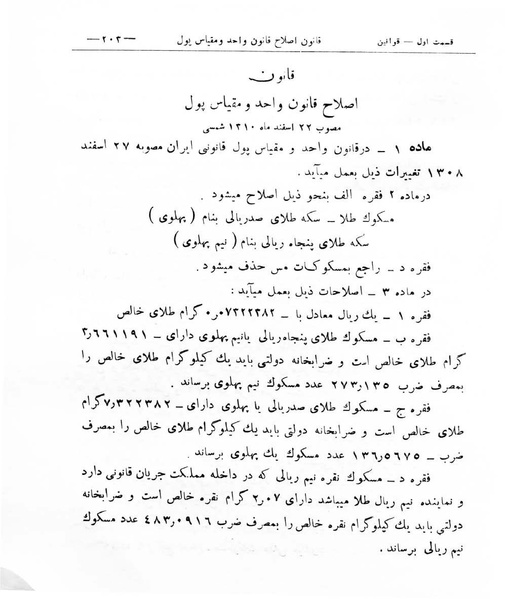 قسمت اول — قوانین قانون اصلاح قانون واحد و مقیاس پول —۲۰۳—
قانون
اصلاح قانون واحد و مقیاس پول
مصوب ۲۲ اسفند ماه ۱۳۱۰ شمسی
ماده ۱ ـ درقانون واحد و مقیاس پول قانونی ایران مصوبه ۲۷ اسفند
۱۳۰۸ تغییرات ذیل بعمل میآید .
درماده ۲ فقره الف بنحو ذیل اصلاح میشود .
مسکوك طلا ـ سکه طلای صدریالی بنام ( پهلوی )
سکه طلای پنجاه ریالی بنام ( نیم پهلوی )
فقره د ـ راجع بمسکوکات مس حذف میشود .
در ماده ۳ ـ اصلاحات ذیل بعمل میآید :
فقره ۱ ـ یك ریال معادل با ـ ۰٫۰۷۳۲۲۳۸۲ گرام طلای خالص
فقره ب ـ مسکوك طلای پنجاه ریالی یانیم پهلوی دارای ـ ۳٫۶۶۱۱۹۱
گرام طلای خالص است و ضرابخانه دولتی باید یك کیلوگرام طلای خالص را
بمصرف ضرب ۲۷۳٫۱۳۵ عدد مسکوك نیم پهلوی برساند .
فقره ج ـ مسکوك طلای صدریالی یا پهلوی دارای ـ ۷٫۳۲۲۳۸۲گرام
طلای خالص است و ضرابخانه دولتی باید یك کیلوگرام طلای خالص را بمصرف
ضرب ـ ۱۳۶٫۵۶۷۵ عدد مسکوك یك پهلوی برساند .
فقره د ـ مسکوك نقره نیم ریالی که در داخله مملکت جریان قانونی دارد
و نماینده نیم ریال طلا میباشد دارای ۲٫۰۷ گرام نقره خالص است و ضرابخانه
دولتی باید یك کیلوگرام نقره خالص را بمصرف ضرب ۴۸۳٫۰۹۱۶ عدد مسکوك
نیم ریالی برساند .